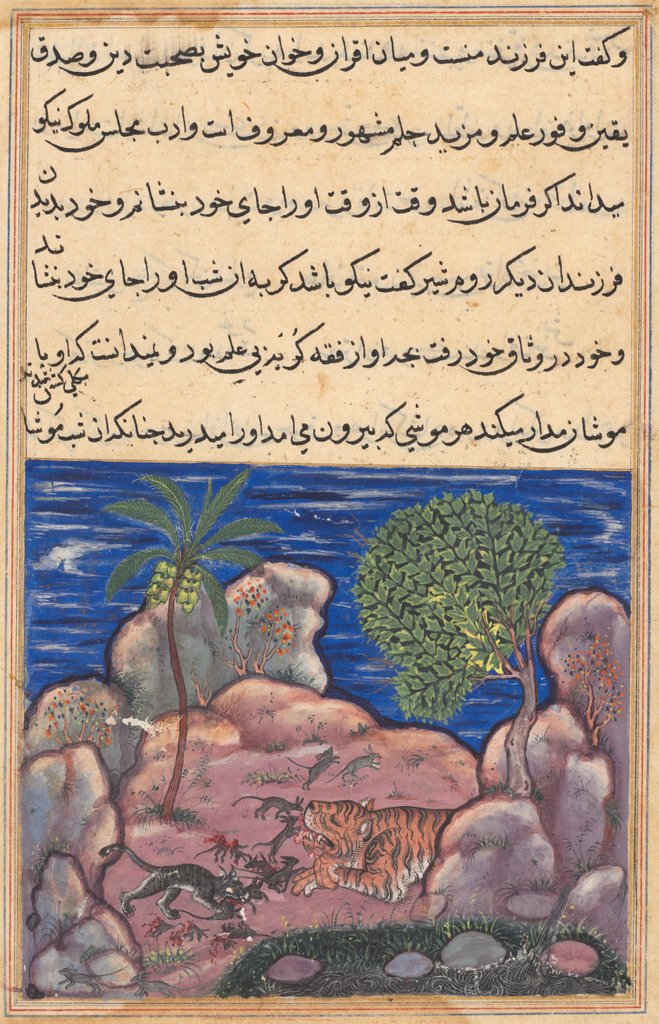 و کفت این فرزند منست و میان اقران و خوان خویش بصحبت دین و صدق
یقین و فور علم و مزید حلم مشهور و معروف است و ادب مجلس ملوک نیکو
میداند اکر فرمان باشد وقت از وقت او را جای خود بنشانم و خود بدیدن
فرزندان دیکر روم شیر کفت نیکو باشد کربه آن شب او را جای خود بنشاند
و خود در وثاق خود رفت بچه او از فقه کربه بی علم بود و نمیدانست که او با
موشان مدارا میکند هر موشی که بیرون می آمد او را میدرید چنانکه آن شب موشا